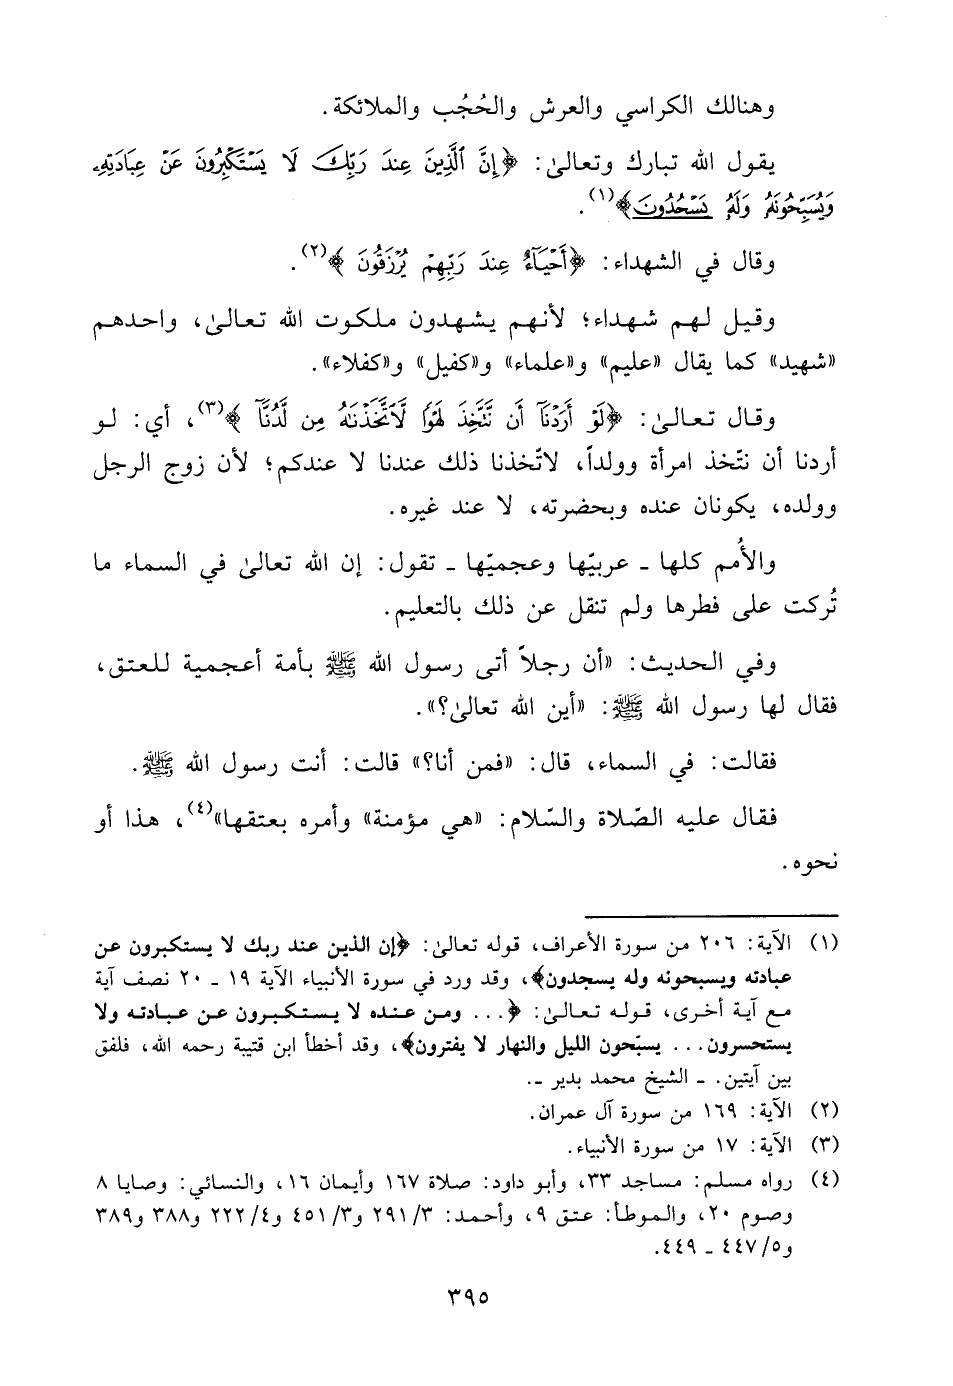 وهنالك الكراسي والعرش والحُجُب والملائكة.
يقول الله تبارك وتعالىٰ: ﴿إِنَّ ٱلَّذِينَ عِندَ رَبِّكَ لَا يَسْتَكْبِرُونَ عَنْ عِبَادَتِهِۦ
وَيُسَبِّحُونَهُۥ وَلَهُۥ يَسْجُدُونَ﴾(١).
وقال في الشهداء: ﴿أَحْيَآءٌ عِندَ رَبِّهِمْ يُرْزَقُونَ﴾(٢).
وقيل لهم شهداء؛ لأنهم يشهدون ملكوت الله تعالىٰ، واحدهم
«شهيد» كما يقال «عليم» و«علماء» و«كفيل» و«كفلاء».
وقال تعالىٰ: ﴿لَوْ أَرَدْنَآ أَن نَّتَّخِذَ لَهْوًا لَّٱتَّخَذْنَٰهُ مِن لَّدُنَّآ﴾(٣)، أي: لو
أردنا أن نتّخذ امرأة وولداً، لاتّخذنا ذلك عندنا لا عندكم؛ لأن زوج الرجل
وولده، يكونان عنده وبحضرته، لا عند غيره.
والأُمم كلها ـ عربيّها وعجميّها ـ تقول: إن الله تعالىٰ في السماء ما
تُركت على فطرها ولم تنقل عن ذلك بالتعليم.
وفي الحديث: «أن رجلاً أتى رسول الله ﷺ بأمة أعجمية للعتق،
فقال لها رسول الله ﷺ: «أين الله تعالىٰ؟».
فقالت: في السماء، قال: «فمن أنا؟» قالت: أنت رسول الله ﷺ.
فقال عليه الصّلاة والسّلام: «هي مؤمنة» وأمره بعتقها»(٤)، هذا أو
نحوه.
(١) الآية: ٢٠٦ من سورة الأعراف، قوله تعالىٰ: ﴿إن الذين عند ربك لا يستكبرون عن
عبادته ويسبحونه وله يسجدون﴾، وقد ورد في سورة الأنبياء الآية ١٩ ـ ٢٠ نصف آية
مع آية أخرى، قوله تعالىٰ: ﴿... ومن عنده لا يستكبرون عن عبادته ولا
يستحسرون... يسبّحون الليل والنهار لا يفترون﴾، وقد أخطأ ابن قتيبة رحمه الله، فلفق
بين آيتين. ـ الشيخ محمد بدير ـ.
(٢) الآية: ١٦٩ من سورة آل عمران.
(٣) الآية: ١٧ من سورة الأنبياء.
(٤) رواه مسلم: مساجد ٣٣، وأبو داود: صلاة ١٦٧ وأيمان ١٦، والنسائي: وصايا ٨
وصوم ٢٠، والموطأ: عتق ٩، وأحمد: ٣/ ٢٩١ و٣/ ٤٥١ و٤/ ٢٢٢ و٣٨٨ و٣٨٩
و٥/ ٤٤٧ ـ ٤٤٩.
٣٩٥